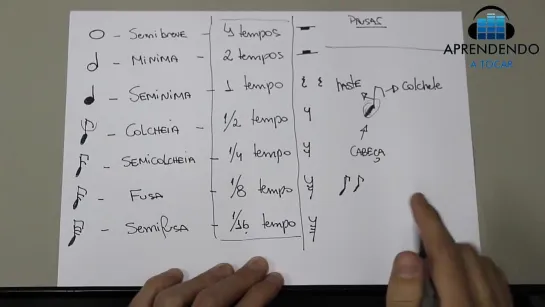 APRENDENDO
A TOCAR
PAUSAS
- SEMIBREVE - 4 tempos
- MÍNIMA - 2 tempos
- SEMÍNIMA - 1 tempo
HASTE
Colchete
- COLCHEIA - 1/2 tempo
CABEÇA
- SEMICOLCHEIA - 1/4 tempo
- FUSA - 1/8 tempo
- Semifusa - 1/16 tempo